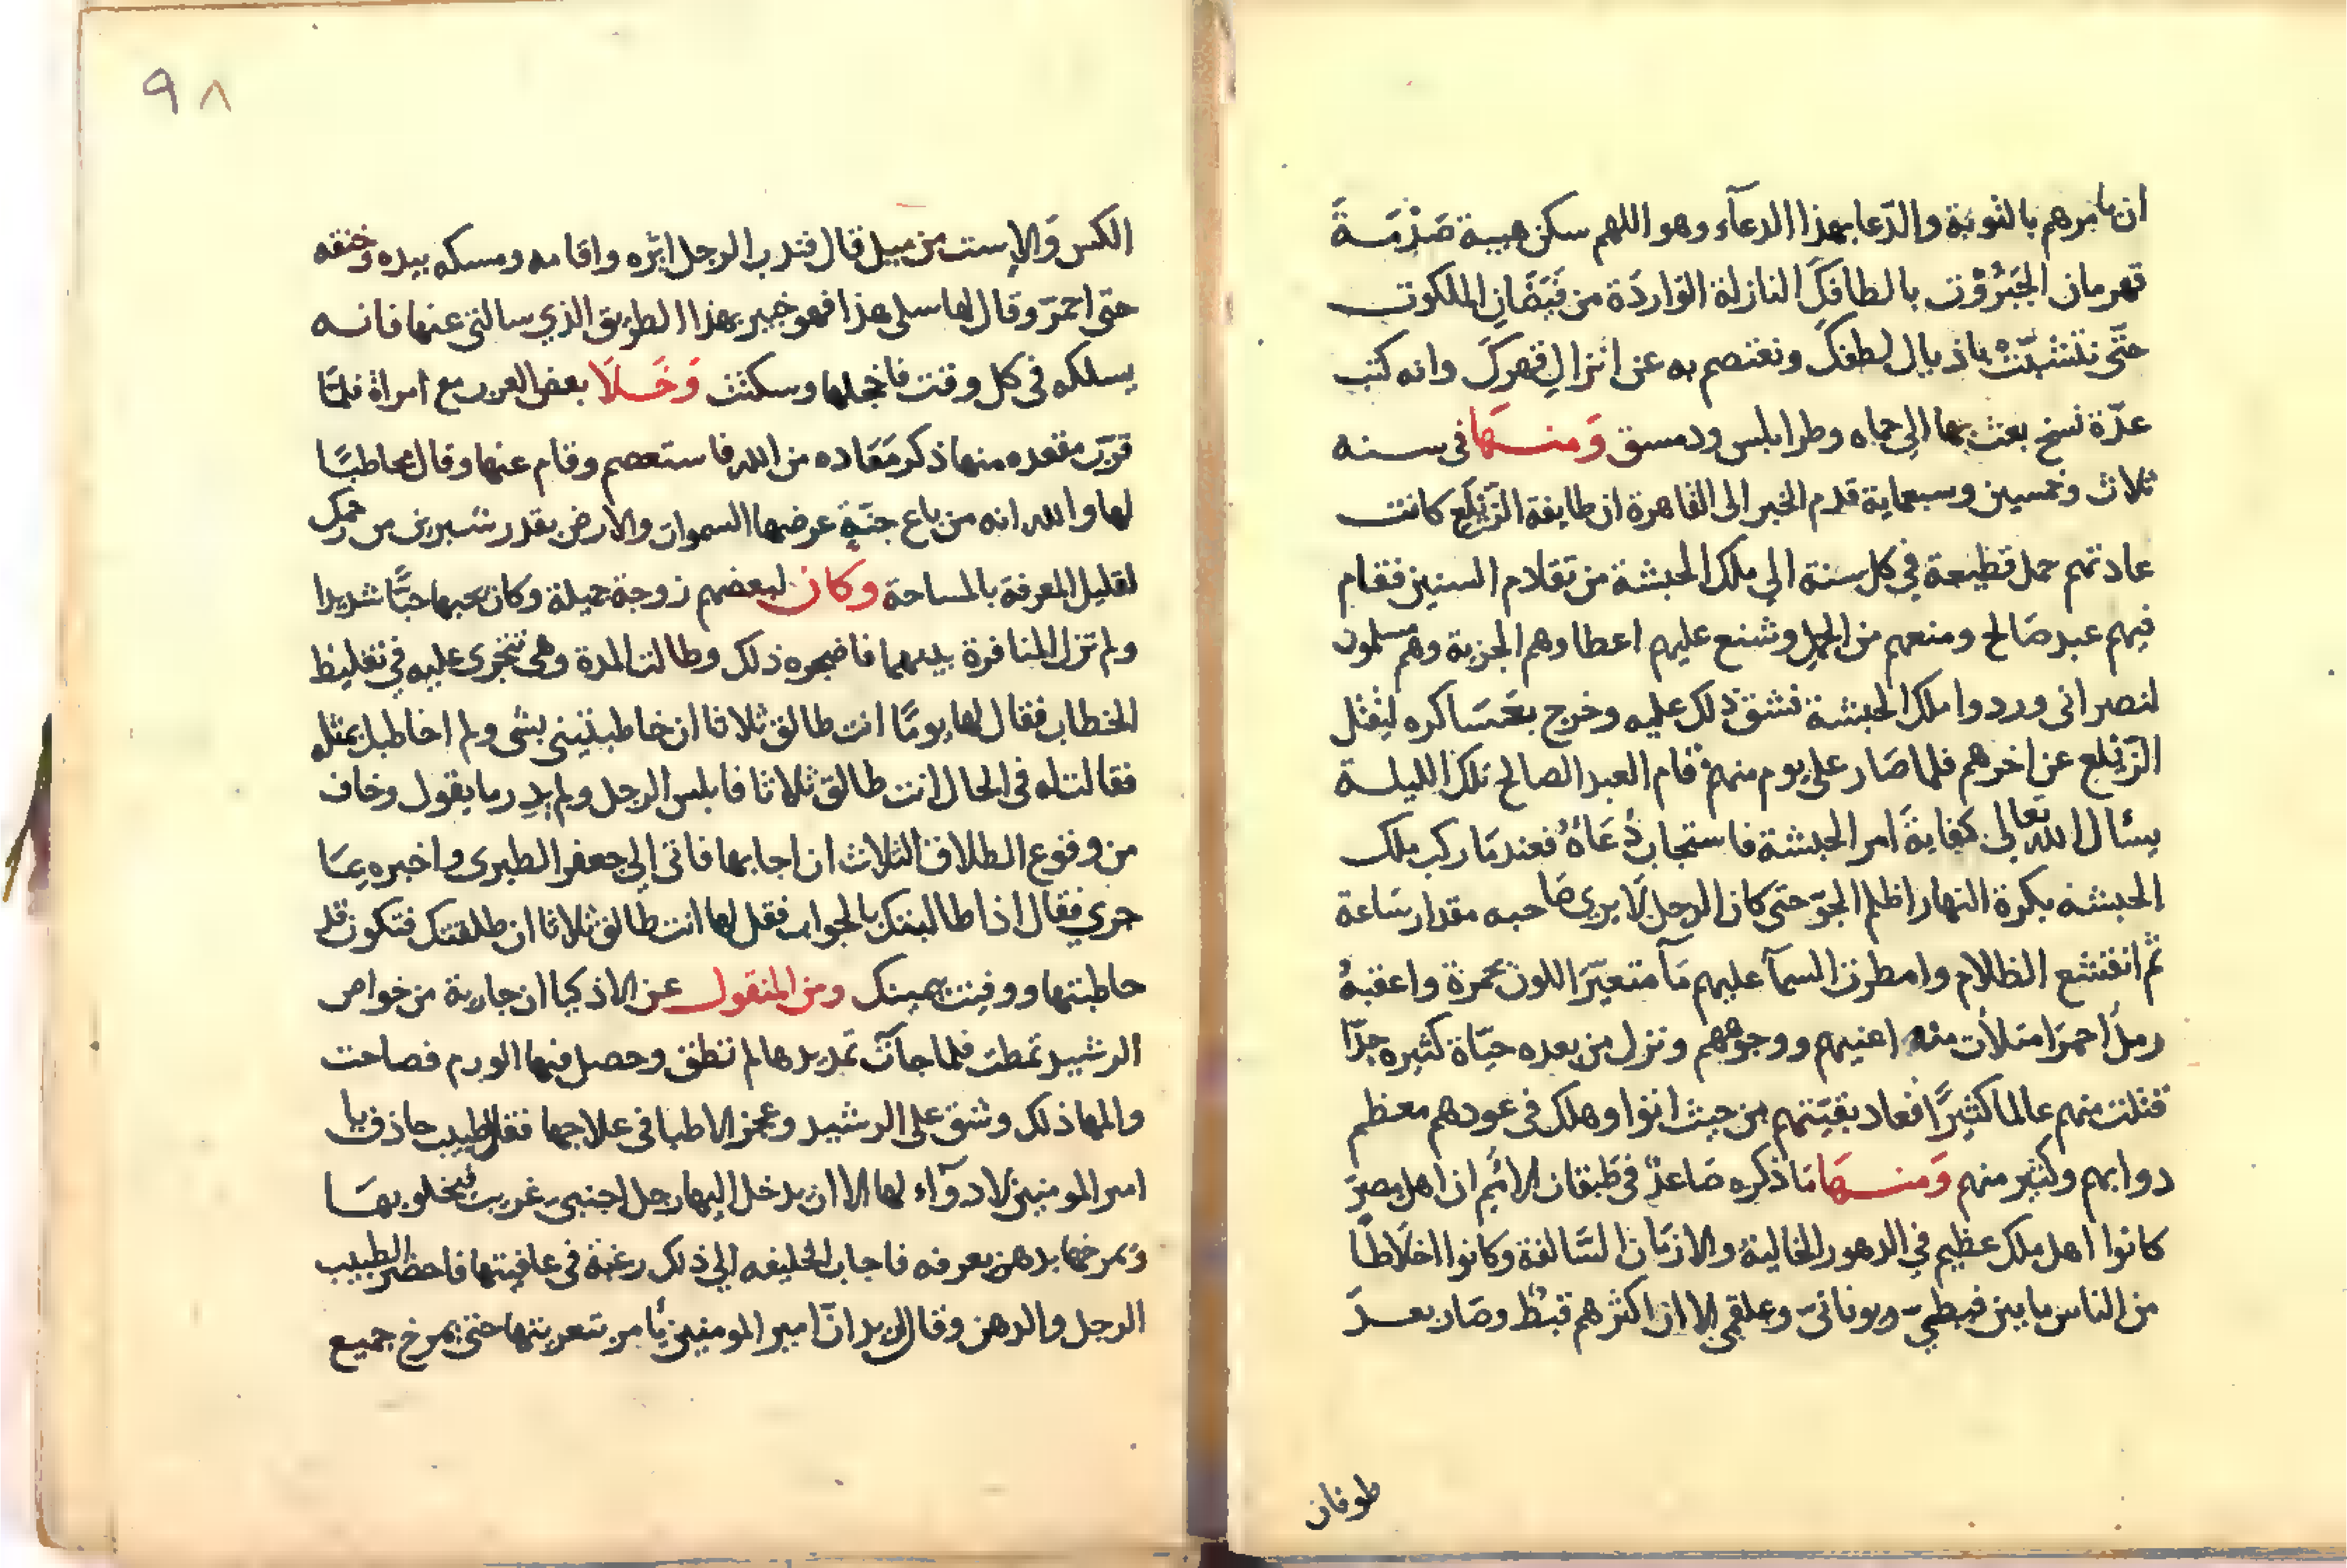 ان يامرهم بالتوبة والدّعا بهذا الدعآء وهو اللهم سكن هيبة صَدْمَةَ
قهرمان الجَبَرُوْت بالطافكَ النازلة الوَاردَة من فَيَضَانِ الملكوت
حتّى نتشبّث باذيال لطفكَ ونعتصم به عن انزالِ قهركَ وانه كتب
عدّة نسخ بعث بها الى حماه وطرابلس ودمسق وَمنهَا فى سنه
ثلاث وخمسين وسبعماية قدم الخبر الى القاهرة ان طايفة الزّيْلَع كانت
عادتهم حمل قطيعة في كل سنة الي ملك الحبشة من تقلام السنين فقام
فيهم عبد صَالح ومنعهم من الحمل وشنع عليهم اعطاوهم الجزية وهم مسلمون
لنصرانى وردوا ملك الحبشة فشق ذلك عليه وخرج بعَسَاكره لِيقْتل
الزّيْلع عن اخرهم فلما صَار على يوم منهم قام العبد الصالح تلك الليلة
يسأل الله تعالى كفايةَ امر الحبشة فاستجاب دُعَاهُ فعندمَا ركب ملك
الحبشه بكرة النهار اظلم الجوّ حتى كان الرجل لَا يرى صَاحبه مقدار سَاعة
ثم انقشع الظلام وامطرت السمآ عليهم مَآ متغيّرَ اللون بحمرة واعقبهُ
رملاً احمرَ امتلأت منه اعنيهم ووجوههم ونزل من بعده حيّاة كثيره جدّا
فقتلت منهم عالما كثيرًا فعاد بقيّتهم من حيث اتوا وهلك فى عودهم معظم
دوابهم وكثير منهم وَمنهَا مَا ذكره صَاعدٌ فى طَبقات الأُمَمِ ان اهل مصِرَ
كانوا اهل ملك عظيم في الدهور الخالية والازمَان السَّالفة وكانوا اخلَاطًا
من الناس ما بين قبطيّ ويونانىّ وعلقمي الا ان اكثرهم قبْط وصَار بعدَ
طوفان
٩٨
الكس وَالإست من ميل قال فندب الرجل ايْره واقامه ومسكه بيده وخنقه
حتى احمرّ وقال لها سلى هذا فهو خبير بهذا الطريق الذي سالتى عنها فانه
يسلكه فى كل وقت فاخجلها وسكتت وَخَلَا بعض العرب مع امراة فلمّا
قرّب مقعده منها ذكر مَعَاده من الله فاستعصم وقام عنها وقال مخاطبًا
لها والله انه من باع جنّةٍ عرضها السموات والارض بقدر شبرين من حمك
لقليل المعرفة بالمساحة وكان لبعضهم زوجة جميلة وكان يحبها حبًّا شديدا
ولم تزل المنافرة بينهما فاضجره ذلك وطالت المدة وهى تتجرى عليه في تغليظ
الخطاب فقال لها يومًا انت طالق ثلاثا ان خاطبتينى بشى ولم اخاطبك بمثله
فقالت له فى الحال انت طالق ثلاثا فابلس الرجل ولم يدِر ما يقول وخاف
من وقوع الطلاق الثلاث ان اجابها فاتى الي جعفر الطبرى واخبره بمَا
جري فقال اذا طالبتك بالجواب فقل لها انت طالق ثلاثا ان طلقتك فتكون قد
خاطبتها ووفيت يمينك ومن المنقول عن الاذكيا ان جارية من خواص
الرشيد تمطت فلما جآت تمد يدها لم تطق وحصل فيها الورم فصاحت
والمها ذلك وشق على الرشيد وعجز الاطبا فى علاجها فقال طبيب حاذق يا
امير المومنين لا دوآء لها الا ان يدخل اليها رجل اجنبى غريب فيخلو بهَا
ويمرخها بدهن يعرفه فاجاب الخليفه الي ذلك رغبة فى عافيتها فاحضر الطبيب
الرجل والدهن وقال اريد انّ امير المومنين يأمر بتعريتها حتى يمرخ جميع